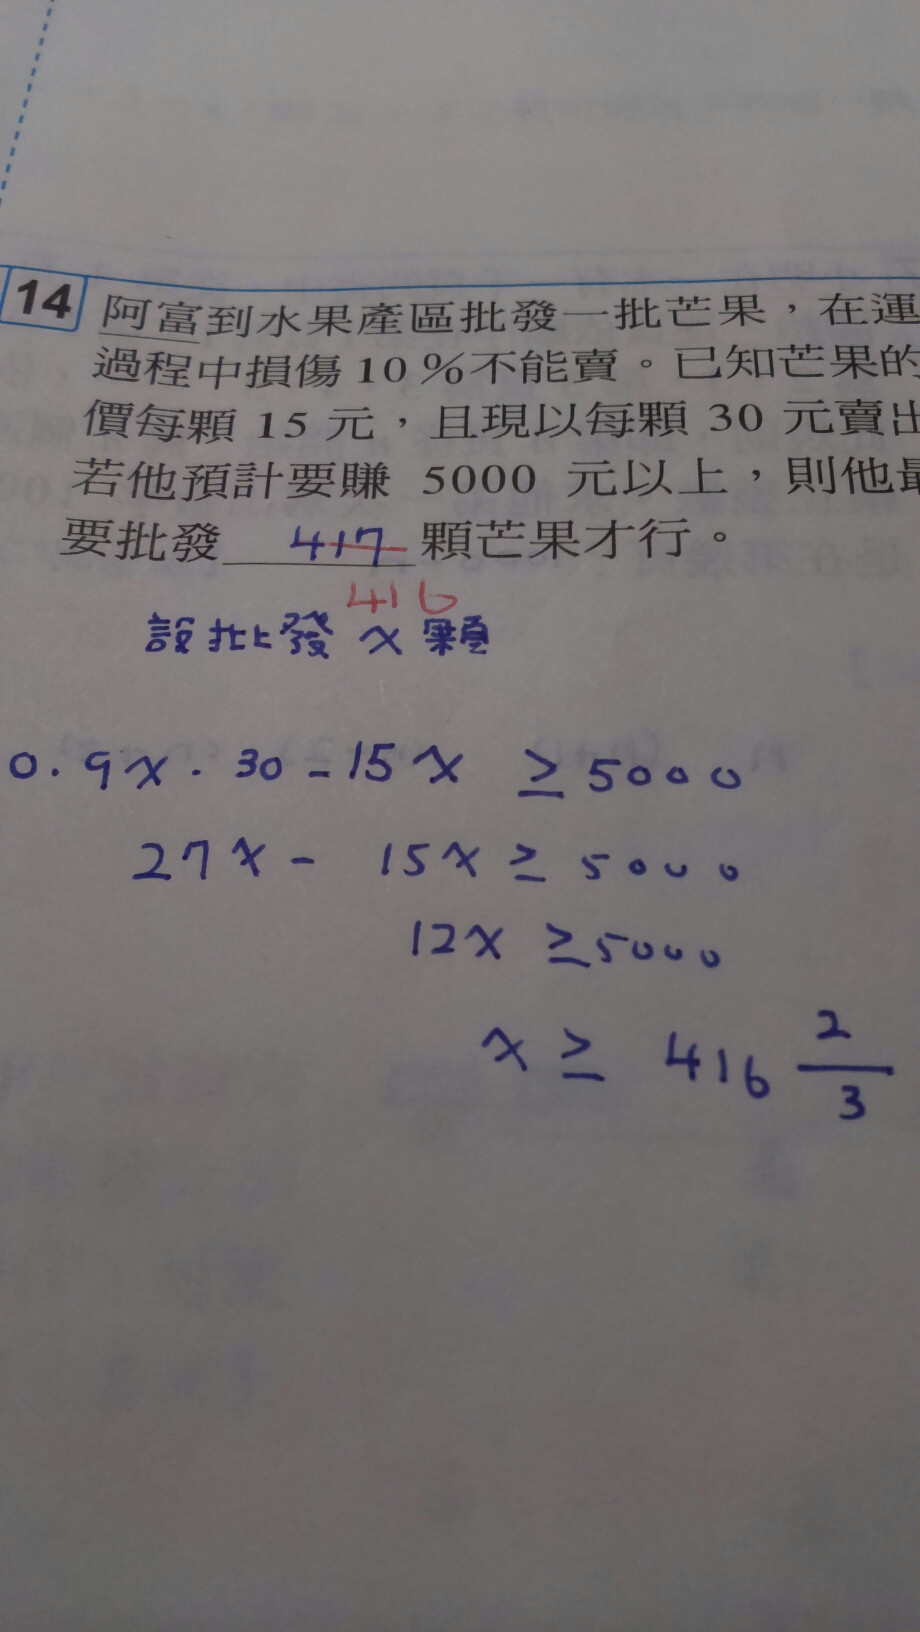 14 阿富到水果產區批發一批芒果，在運
過程中損傷 10 %不能賣。已知芒果的
價每顆 15 元，且現以每顆 30 元賣出
若他預計要賺 5000 元以上，則他最
要批發 417 顆芒果才行。
416
設批發 x 顆
0.9x · 30 - 15x ≥ 5000
27x - 15x ≥ 5000
12x ≥ 5000
x ≥ 416 2/3